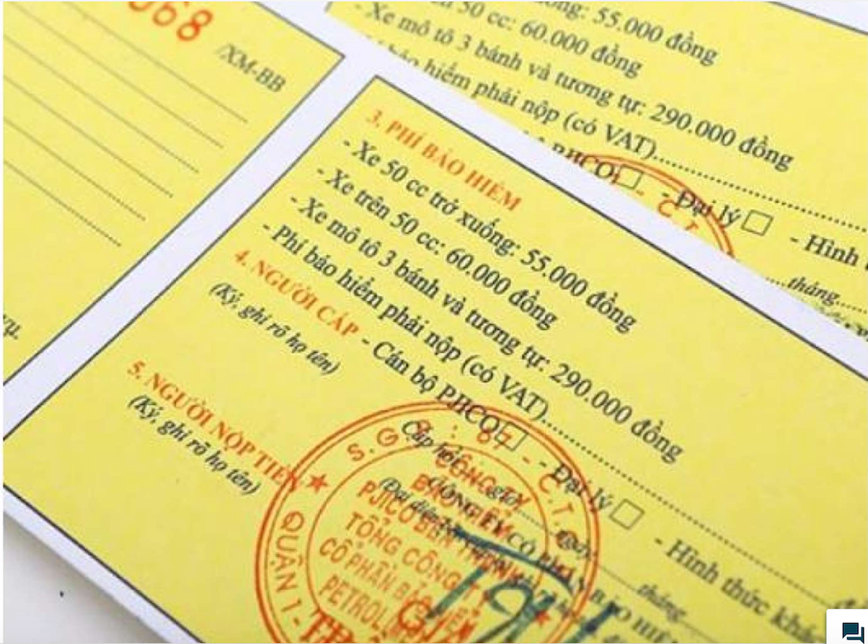 068 /XM-BB
50 cc: 60.000 đồng
- Xe mô tô 3 bánh và tương tự: 290.000 đồng
bảo hiểm phải nộp (có VAT)
PJICO □ - Đại lý □ - Hình
tháng
3. PHÍ BẢO HIỂM
- Xe 50 cc trở xuống: 55.000 đồng
- Xe trên 50 cc: 60.000 đồng
- Xe mô tô 3 bánh và tương tự: 290.000 đồng
- Phí bảo hiểm phải nộp (có VAT)
4. NGƯỜI CẤP - Cán bộ PJICO □ - Đại lý □ - Hình thức
(Ký, ghi rõ họ tên)
tháng
5. NGƯỜI NỘP TIỀN
(Ký, ghi rõ họ tên)
CÔNG TY
BẢO HIỂM
PJICO BẾN THÀNH
TỔNG CÔNG TY
CỔ PHẦN BẢO HIỂM
QUẬN 1